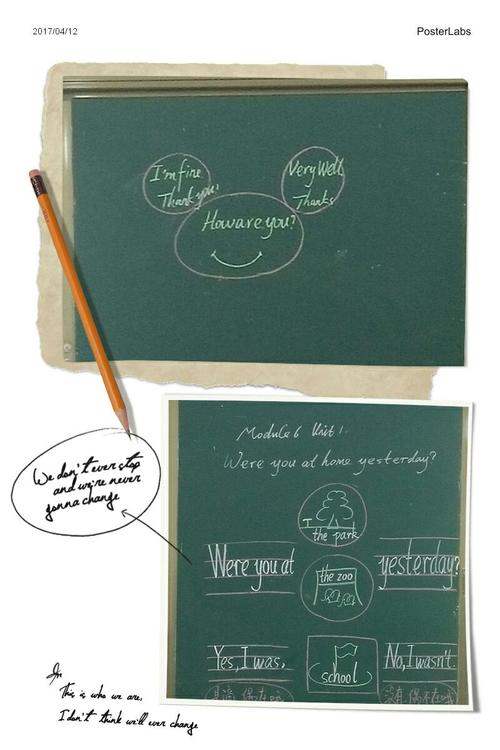 2017/04/12
PosterLabs
I'm fine
Thank you!
Very Well
Thanks
How are you?
We don't ever stop
and we're never
gonna change
Module 6 Unit 1.
Were you at home yesterday?
the park
Were you at
the zoo
yesterday?
Yes, I was.
school
No, I wasn't.
This is who we are.
I don't think will ever change